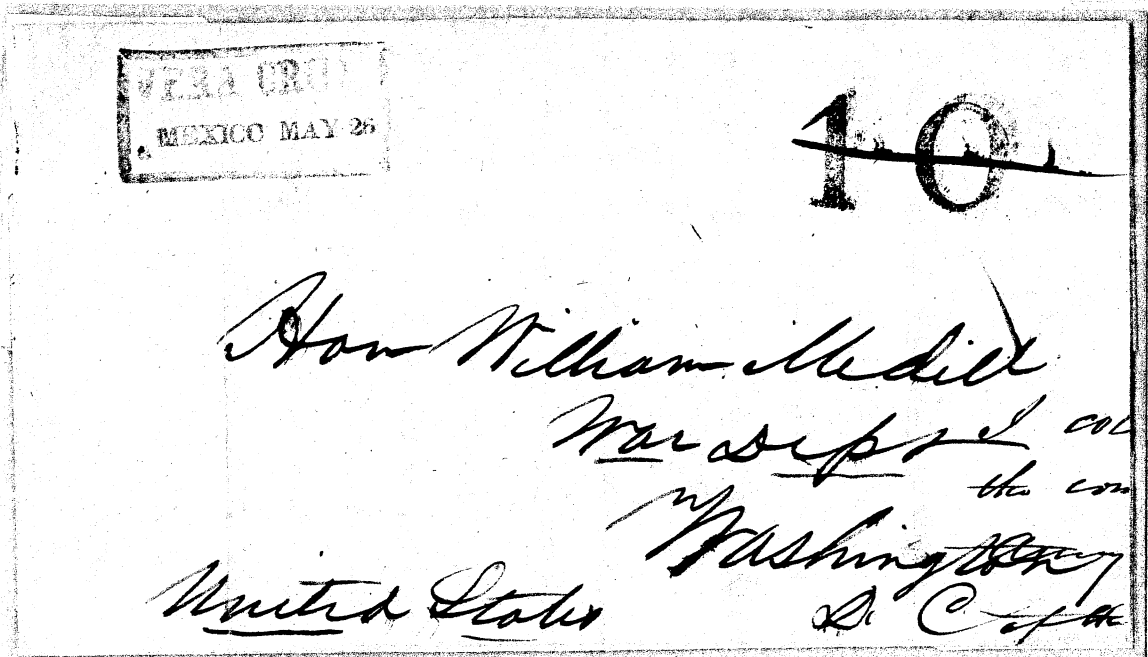 VERA CRU
MEXICO MAY 26
10
Hon William Medill
War Dept
I
the
Washington
D. C
United States